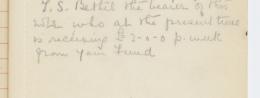 T. S. Bethel the bearer of this
note who at the present time
is receiving £2-0-0 p. week
from your Fund